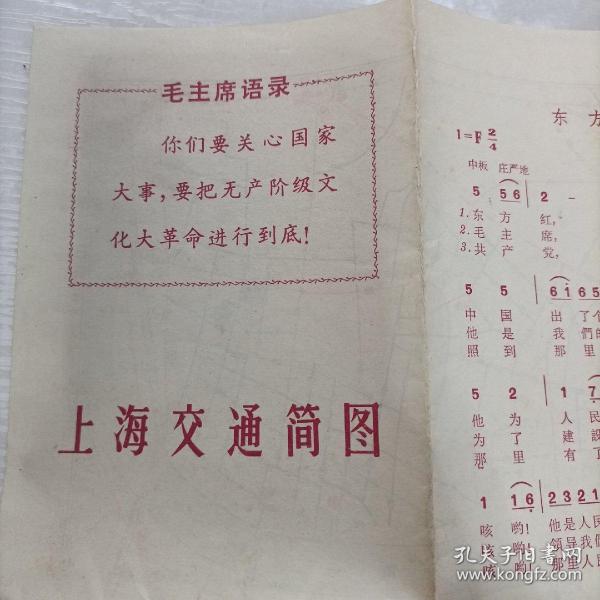 毛主席语录
你们要关心国家
大事，要把无产阶级文
化大革命进行到底！
上海交通简图
东方
1=F 2/4
中板 庄严地
5 5 6 2 -
1.东 方 红，
2.毛 主 席，
3.共 产 党，
5 5 6 i 6 5
中 国 出 了个
他 是 我 們的
照 到 那 里
5 2 1 7
他 为 人 民
为 了 建 設
那 里 有 了
1 1 6 2 3 2 1
咳 哟！ 他是人民
咳 哟！ 领导我們
咳 哟！ 那里人民
孔夫子旧书网
www.kongfz.com